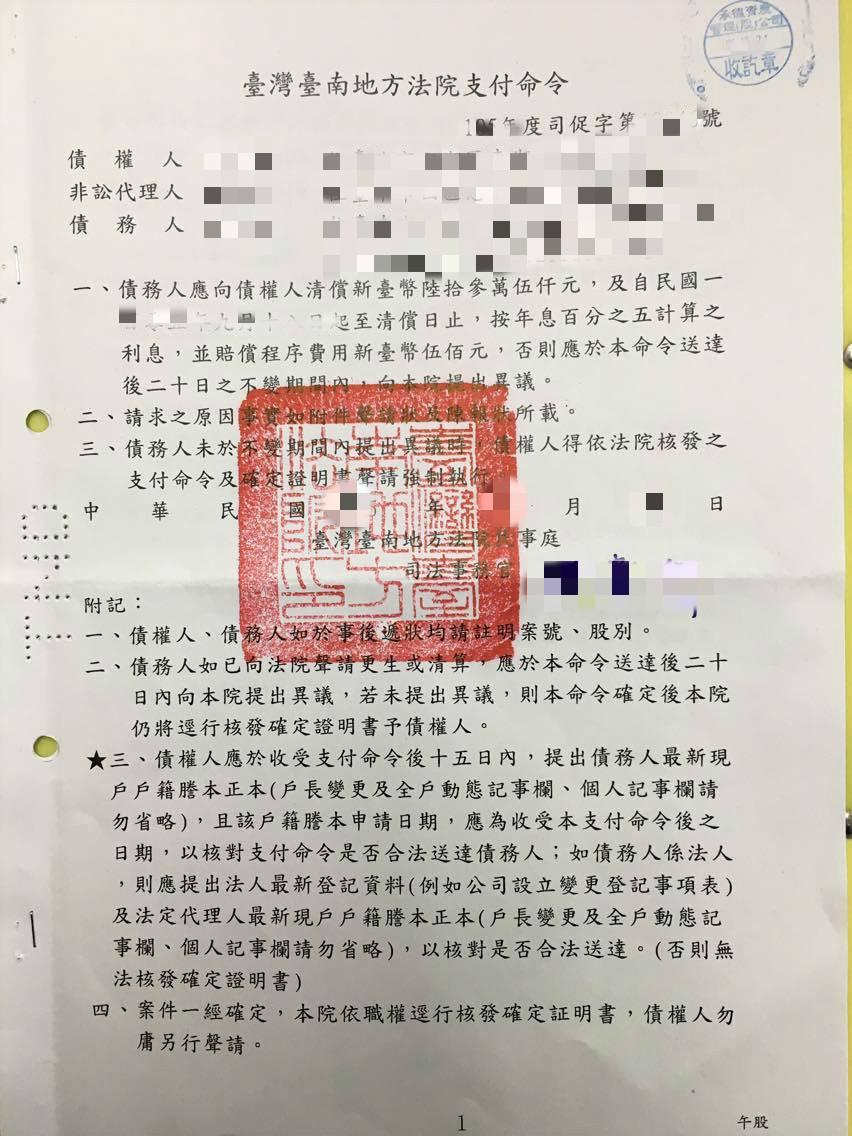 承德資產
管理(股)公司
收訖章
臺灣臺南地方法院支付命令
年度司促字第 號
債權人
非訟代理人
債務人
一、債務人應向債權人清償新臺幣陸拾參萬伍仟元，及自民國一
年九月十八日起至清償日止，按年息百分之五計算之
利息，並賠償程序費用新臺幣伍佰元，否則應於本命令送達
後二十日之不變期間內，向本院提出異議。
二、請求之原因事實如附件聲請狀及陳報狀所載。
三、債務人未於不變期間內提出異議時，債權人得依法院核發之
支付命令及確定證明書聲請強制執行。
中華民國 年 月 日
臺灣臺南地方法院民事庭
司法事務官
附記：
一、債權人、債務人如於事後遞狀均請註明案號、股別。
二、債務人如已向法院聲請更生或清算，應於本命令送達後二十
日內向本院提出異議，若未提出異議，則本命令確定後本院
仍將逕行核發確定證明書予債權人。
★三、債權人應於收受支付命令後十五日內，提出債務人最新現
戶戶籍謄本正本(戶長變更及全戶動態記事欄、個人記事欄請
勿省略)，且該戶籍謄本申請日期，應為收受本支付命令後之
日期，以核對支付命令是否合法送達債務人；如債務人係法人
，則應提出法人最新登記資料(例如公司設立變更登記事項表)
及法定代理人最新現戶戶籍謄本正本(戶長變更及全戶動態記
事欄、個人記事欄請勿省略)，以核對是否合法送達。(否則無
法核發確定證明書)
四、案件一經確定，本院依職權逕行核發確定証明書，債權人勿
庸另行聲請。
1
午股